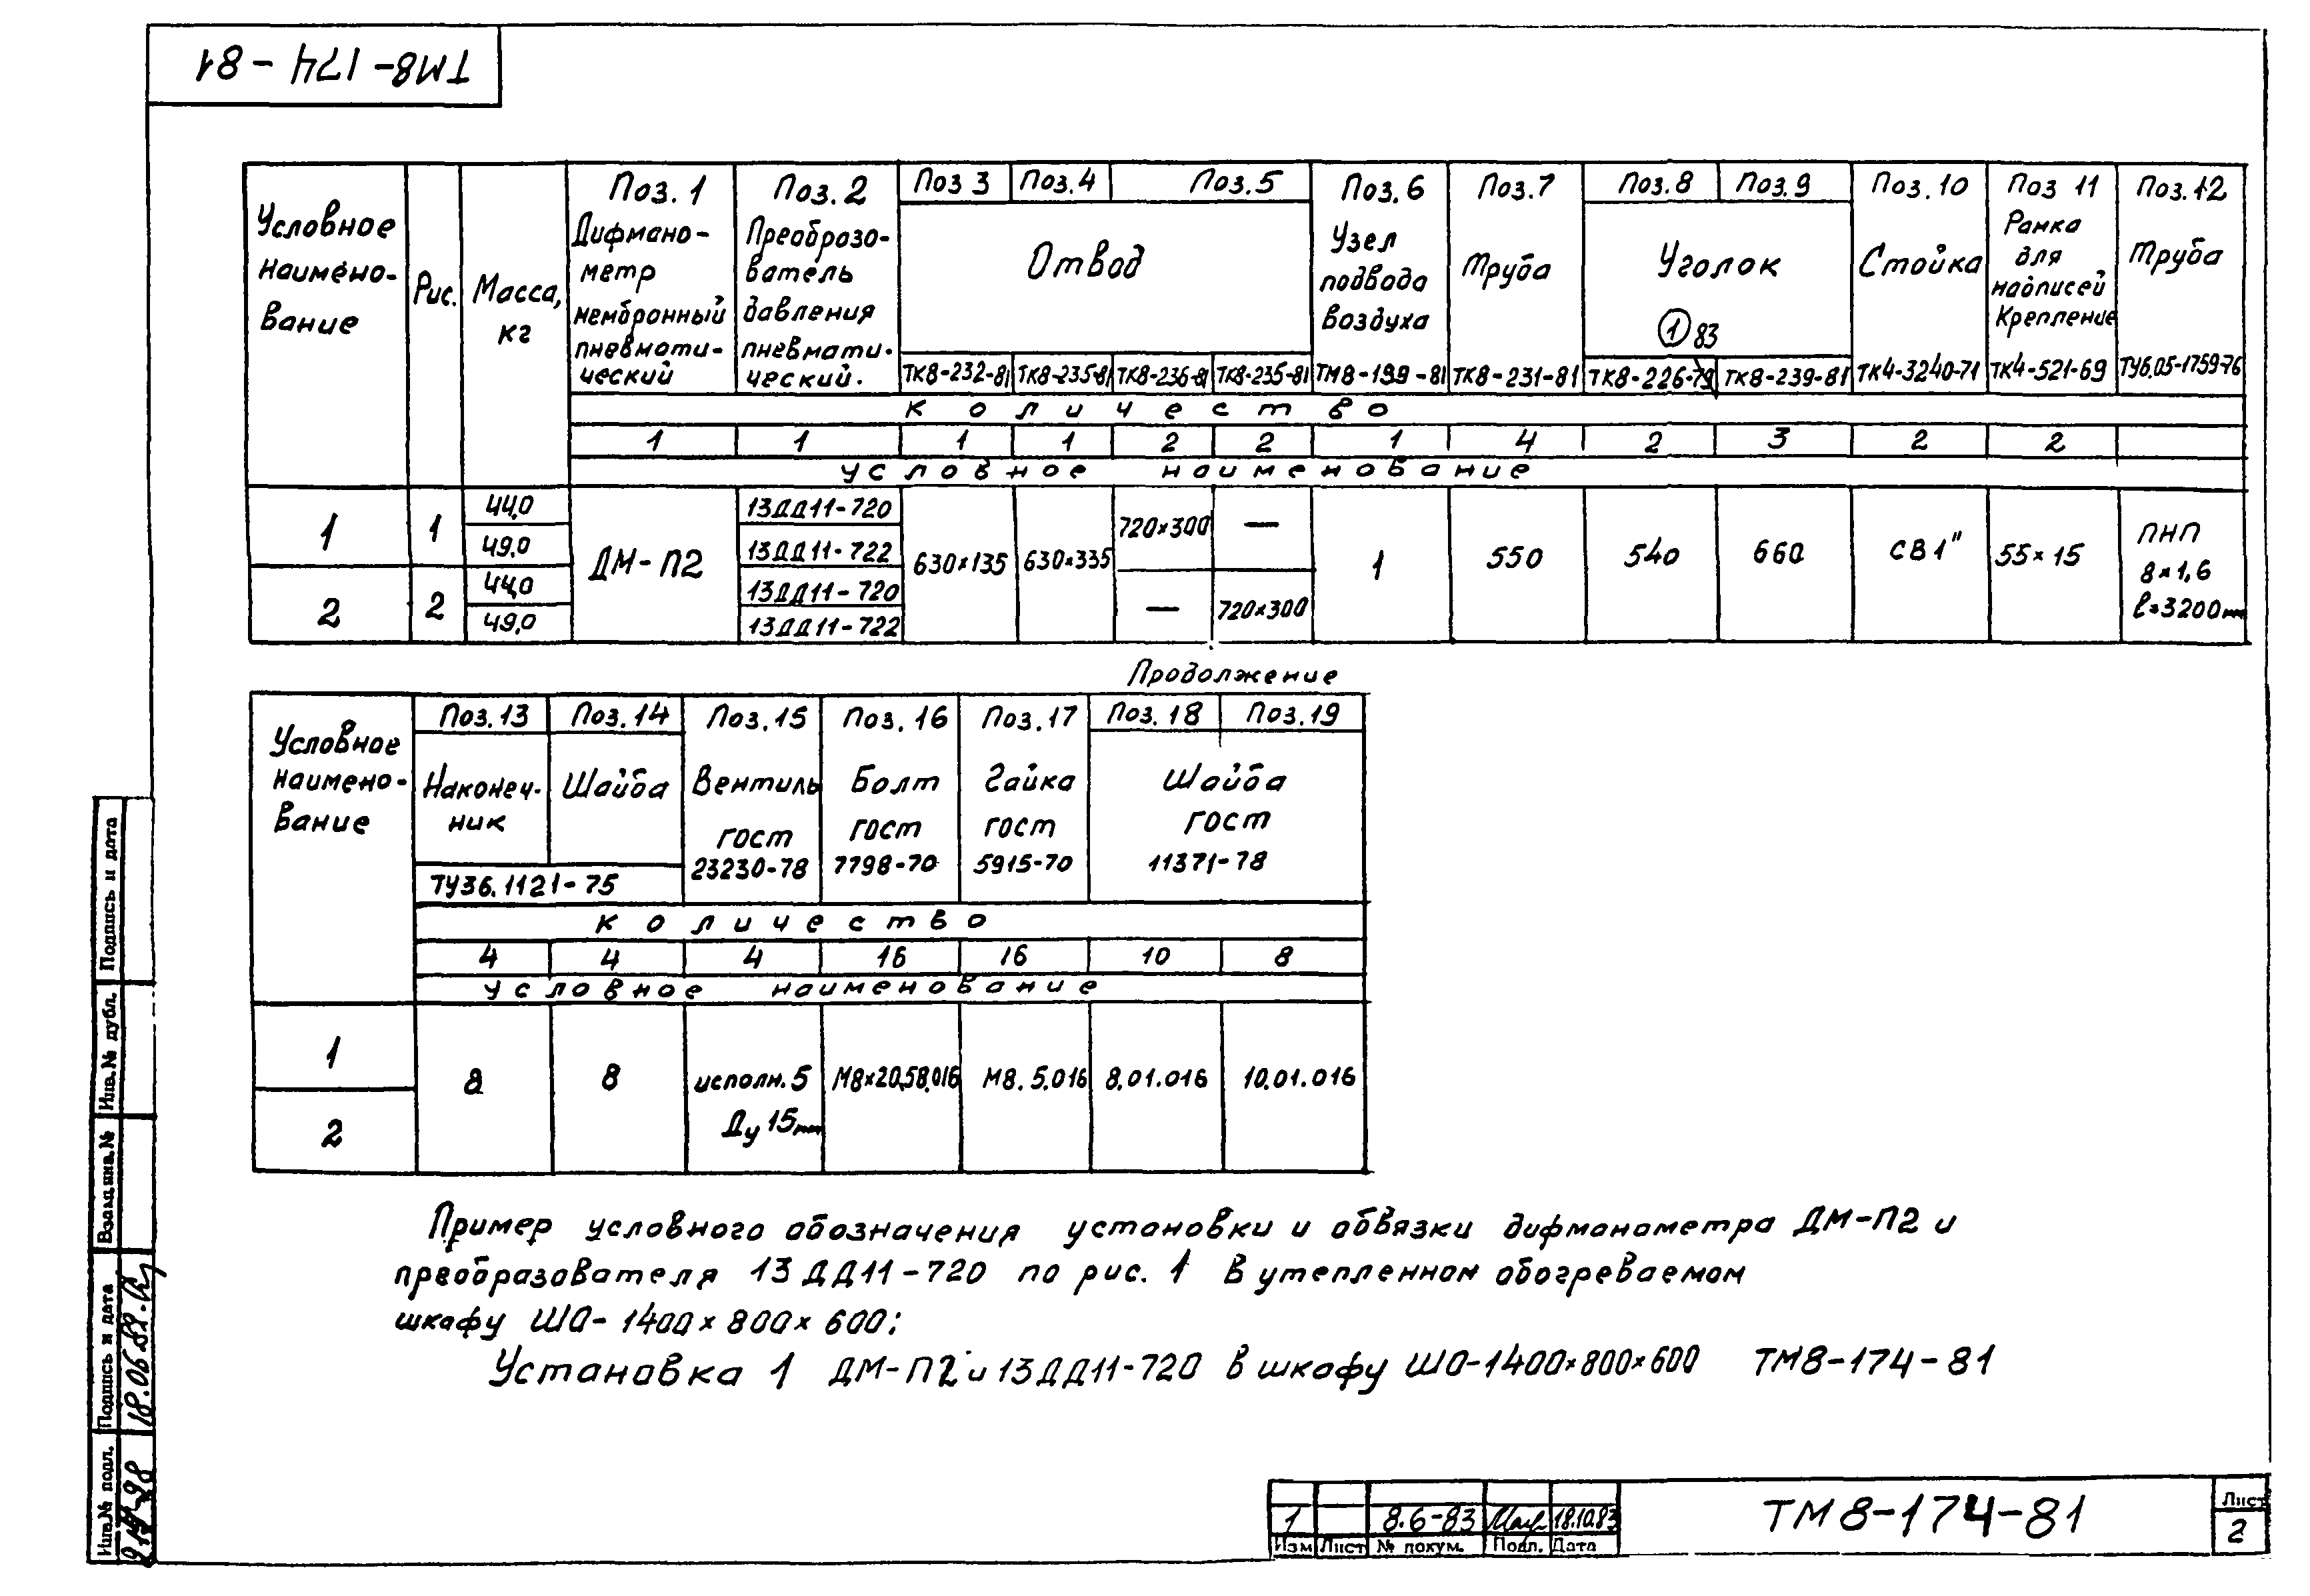 ТМ8-174-81
Условное наимено-вание
Рис.
Масса, кг
Поз. 1
Дифмано-
метр
мембранный
пневмати-
ческий
Поз. 2
Преобразо-
ватель
давления
пневмати-
ческий.
Поз 3
Поз. 4
Поз. 5
Отвод
ТК8-232-81
ТК8-235-81
ТК8-236-81
ТК8-235-81
Поз. 6
Узел
подвода
воздуха
ТМ8-199-81
Поз. 7
Труба
ТК8-231-81
Поз. 8
Поз. 9
Уголок
1 83
ТК8-226-79
ТК8-239-81
Поз. 10
Стойка
ТК4-3240-71
Поз 11
Рамка
для
надписей
Крепление
ТК4-521-69
Поз. 12
Труба
ТУ6.05-1759-76
Количество
1 1 1 1 2 2 1 4 2 3 2 2
условное наименование
1 1 44,0 13ДД11-720
49,0 13ДД11-722
2 2 44,0 13ДД11-720
49,0 13ДД11-722
ДМ-П2
630×135
630×335
720×300 —
— 720×300
1
550
540
660
СВ1"
55×15
ПНП
8×1,6
ℓ=3200мм
Продолжение
Условное
наимено-
вание
Поз. 13
Наконеч-
ник
Поз. 14
Шайба
ТУ36.1121-75
Поз. 15
Вентиль
ГОСТ
23230-78
Поз. 16
Болт
ГОСТ
7798-70
Поз. 17
Гайка
ГОСТ
5915-70
Поз. 18
Поз. 19
Шайба
ГОСТ
11371-78
Количество
4 4 4 16 16 10 8
условное наименование
1
2
8
8
исполн. 5
Ду 15мм
М8×20,58.016
М8. 5.016
8.01.016
10.01.016
Пример условного обозначения установки и обвязки дифманометра ДМ-П2 и
преобразователя 13ДД11-720 по рис. 1 в утепленном обогреваемом
шкафу ШО-1400×800×600:
Установка 1 ДМ-П2 и 13ДД11-720 в шкафу ШО-1400×800×600 ТМ8-174-81
Подпись и дата
Инв. № дубл.
Взам. инв. №
Подпись и дата
18.06.82.
Инв. № подл.
1 8.6-83 18.10.83
Изм Лист № докум. Подп. Дата
ТМ8-174-81
Лист
2